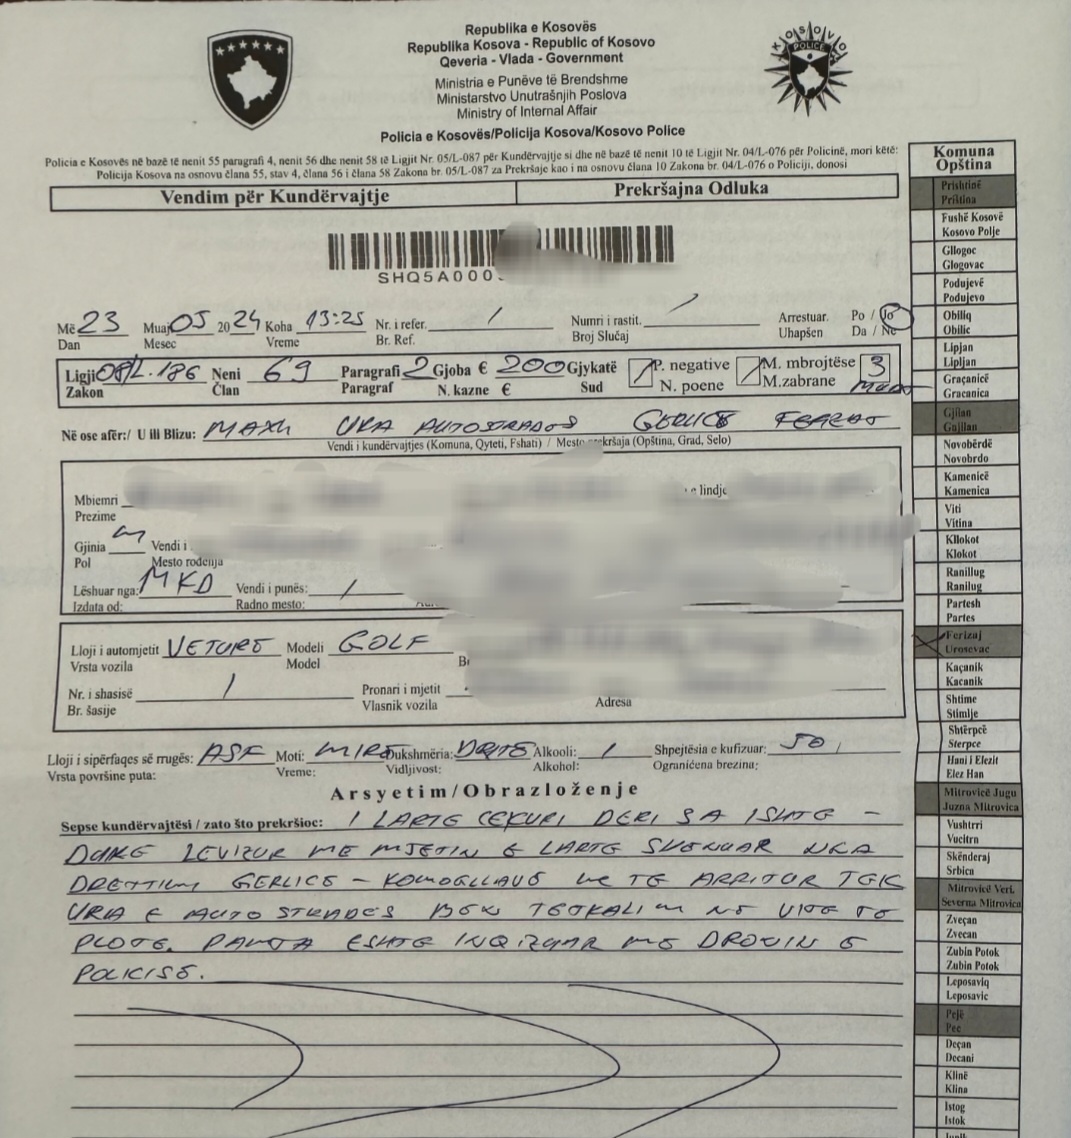 Republika e Kosovës
Republika Kosova - Republic of Kosovo
Qeveria - Vlada - Government
Ministria e Punëve të Brendshme
Ministarstvo Unutrašnjih Poslova
Ministry of Internal Affair
Policia e Kosovës/Policija Kosova/Kosovo Police
KOSOVO
POLICE
Policia e Kosovës në bazë të nenit 55 paragrafi 4, nenit 56 dhe nenit 58 të Ligjit Nr. 05/L-087 për Kundërvajtje si dhe në bazë të nenit 10 të Ligjit Nr. 04/L-076 për Policinë, mori këtë:
Policija Kosova na osnovu člana 55, stav 4, člana 56 i člana 58 Zakona br. 05/L-087 za Prekršaje kao i na osnovu člana 10 Zakona br. 04/L-076 o Policiji, donosi
Vendim për Kundërvajtje Prekršajna Odluka
SHQ5A000
Më 23 Muaj 05 2024 Koha 13:25 Nr. i refer. / Numri i rastit. / Arrestuar. Po / Jo
Dan Mesec Vreme Br. Ref. Broj Slučaj Uhapšen Da / Ne
Ligji 08/L-186 Neni 69 Paragrafi 2 Gjoba € 200 Gjykatë P. negative M. mbrojtëse 3
Zakon Član Paragraf N. kazne € Sud N. poene M.zabrane
Në ose afër:/ U ili Blizu: URA AUTOSTRADËS GERLICË FERIZAJ
Vendi i kundërvajtjes (Komuna, Qyteti, Fshati) / Mesto prekršaja (Opština, Grad, Selo)
Mbiemri lindje
Prezime
Gjinia M Vendi i
Pol Mesto rođenja
Lëshuar nga: MKD Vendi i punës: /
Izdata od: Radno mesto:
Lloji i automjetit VETURË Modeli GOLF
Vrsta vozila Model
Nr. i shasisë / Pronari i mjetit
Br. šasije Vlasnik vozila Adresa
Lloji i sipërfaqes së rrugës: ASF Moti: MIRË Dukshmëria: DRITË Alkooli: / Shpejtësia e kufizuar: 50
Vrsta površine puta: Vreme: Vidljivost: Alkohol: Ograničena brezina:
Arsyetim/Obrazloženje
Sepse kundërvajtësi / zato što prekršioc: I LARTË CEKURI DERI SA ISHTE -
DUKE LEVIZUR ME MJETIN E LARTË SHENUAR NGA
DREJTIMI GERLICË - KOMOGLLAVË ME TË ARRITUR TEK
URA E AUTO STRADËS BËN TEJKALIM NË VIJË TË
PLOTË. PAMJA ËSHTË INQIZUAR ME DRONIN E
POLICISË.
Komuna
Opština
Prishtinë
Priština
Fushë Kosovë
Kosovo Polje
Gllogoc
Glogovac
Podujevë
Podujevo
Obiliq
Obilic
Lipjan
Lipljan
Graçanicë
Gracanica
Gjilan
Gnjilan
Novobërdë
Novobrdo
Kamenicë
Kamenica
Viti
Vitina
Kllokot
Klokot
Ranillug
Ranilug
Partesh
Partes
Ferizaj
Urosevac
Kaçanik
Kacanik
Shtime
Stimlje
Shtërpcë
Sterpce
Hani i Elezit
Elez Han
Mitrovicë Jugu
Juzna Mitrovica
Vushtrri
Vucitrn
Skënderaj
Srbica
Mitrovicë Veri.
Severna Mitrovica
Zveçan
Zvecan
Zubin Potok
Zubin Potok
Leposaviq
Leposavic
Pejë
Pec
Deçan
Decani
Klinë
Klina
Istog
Istok